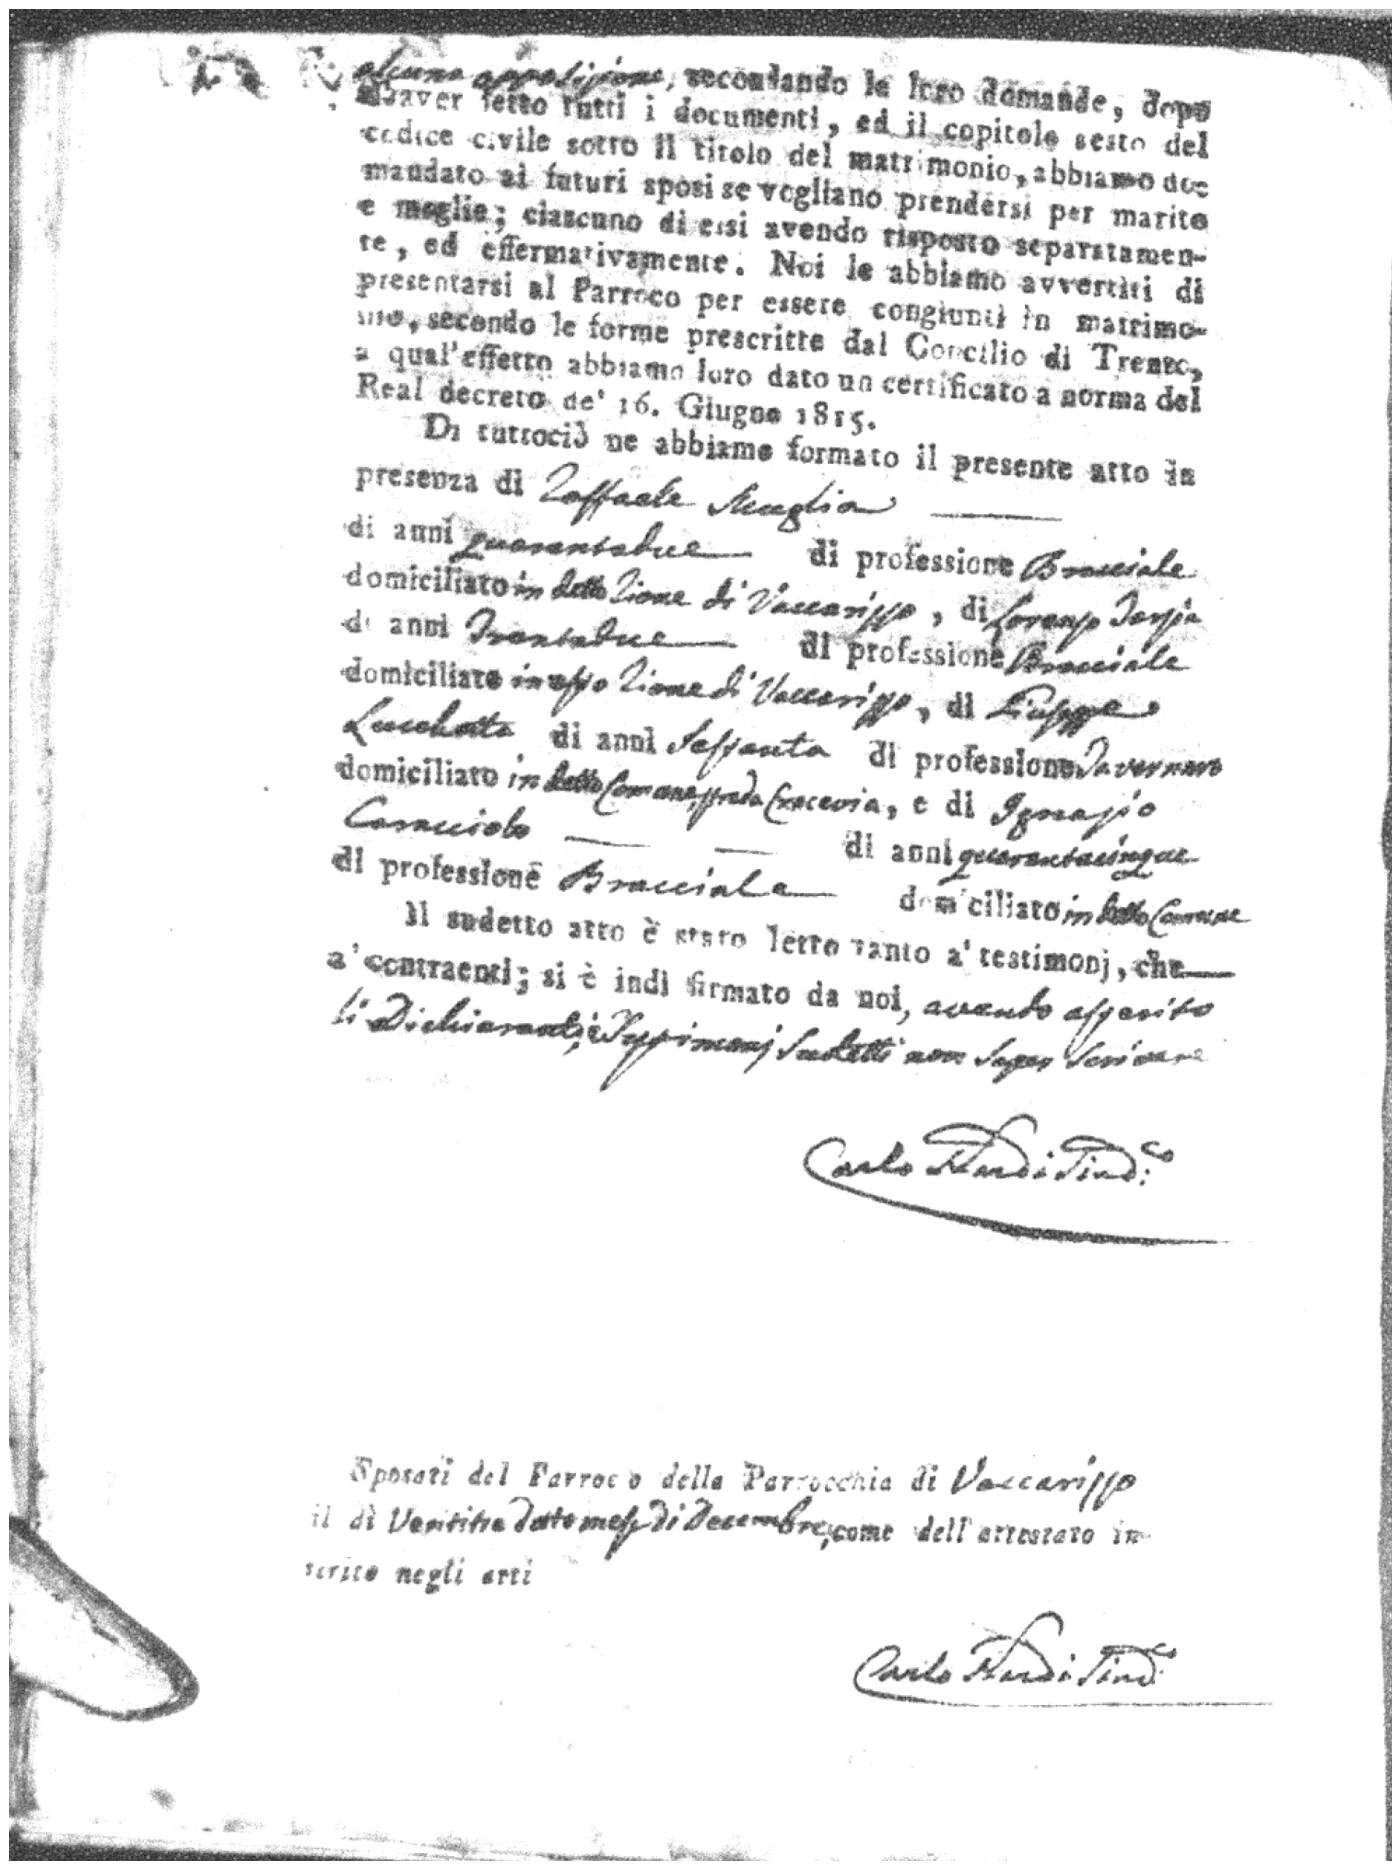 alcuna opposizione, secondando le loro domande, dopo
aver letto tutti i documenti, ed il copitolo sesto del
codice civile sotto il titolo del matrimonio, abbiamo do-
mandato ai futuri sposi se vogliano prendersi per marito
e moglie; ciascuno di essi avendo risposto separatamen-
te, ed effermativamente. Noi le abbiamo avvertiti di
presentarsi al Parroco per essere congiunti in matrimo-
nio, secondo le forme prescritte dal Concilio di Trento,
a qual'effetto abbiamo loro dato un certificato a norma del
Real decreto de' 16. Giugno 1815.
Di tuttociò ne abbiamo formato il presente atto in
presenza di Raffaele
di anni quarantadue di professione Bracciale
domiciliato in detto Rione di Vaccarizzo, di Lorenzo
di anni Trentadue di professione Bracciale
domiciliato in esso Rione di Vaccarizzo, di Giuseppe
Lucchetta di anni Sessanta di professione Tavernaro
domiciliato in detto Comune, strada Crocevia, e di Ignazio
Caracciolo di anni quarantacinque
di professione Bracciale domiciliato in detto Comune
Il sudetto atto è stato letto tanto a' testimonj, che
a' contraenti; si è indi firmato da noi, avendo asserito
li Dichiaranti, e Testimonj sudetti non saper scrivere
Carlo Sind.co
Sposati del Parroco della Parrocchia di Vaccarizzo
il dì Ventitre detto mese di Decembre, come dell'attestato in-
serito negli atti
Carlo Sind.co